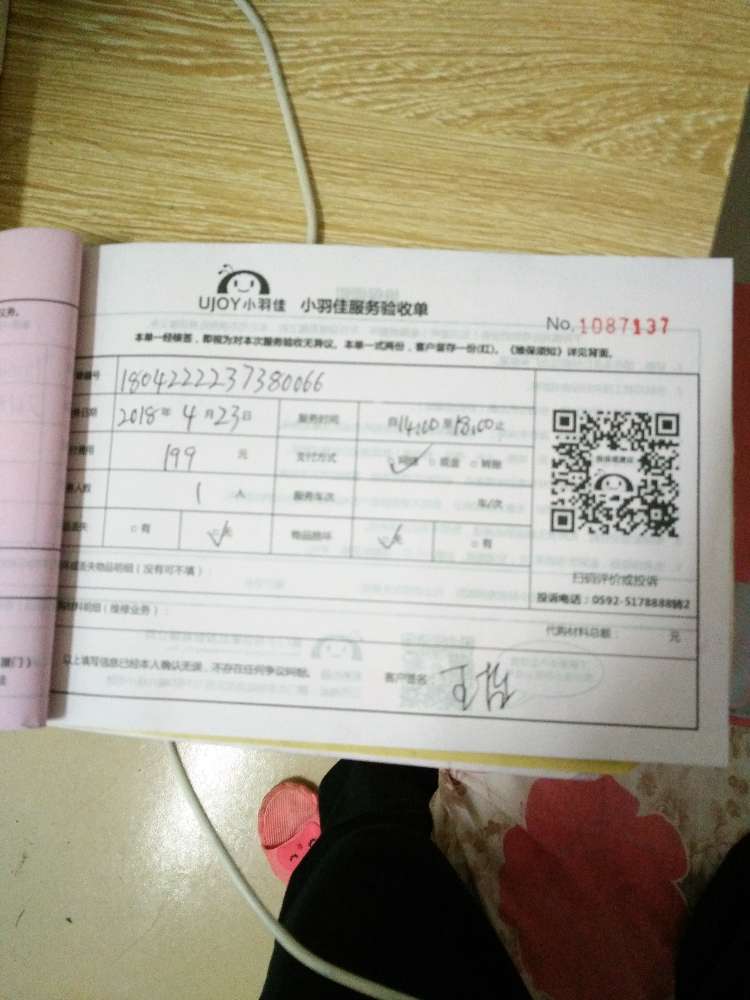 UJOY小羽佳 小羽佳服务验收单
No. 1087137
本单一经核签，即视为对本次服务验收无异议。本单一式两份，客户留存一份(红)。《维保须知》详见背面。
编号 1804222237380066
日期 2018年4月23日 服务时间 自14:00至18:00止
费用 199 元 支付方式 网络 现金 转账
人数 1 人 服务车次 车/次
丢失 有 无 物品损坏 无 有
扫码评价或投诉
投诉电话：0592-5178888转2
或丢失物品明细（没有可不填）：
材料明细（维修业务）： 代购材料总额： 元
以上填写信息已经本人确认无误，不存在任何争议纠纷。 客户签名：